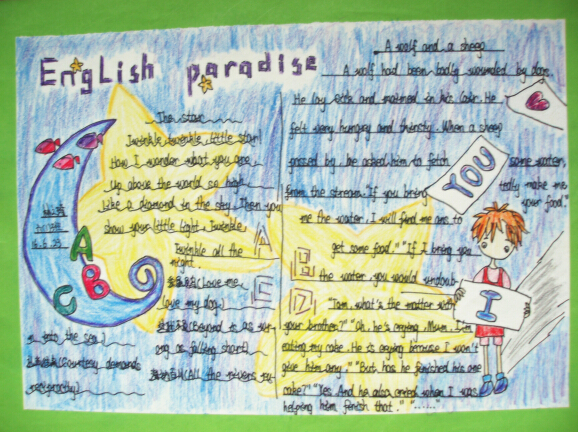 English paradise
The star
Twinkle twinkle, little star
How I wonder what you are
Up above the world so high
Like a diamond in the sky, Then you
show your little light, Twinkle
Twinkle all the
night.
(Love me,
love my dog)
(Beyond is as wr-
ong as falling short)
(All the rivers ru-
n into the sea)
(Courtesy demands
reciprocity)
A
B
C
A
B
C
D
A wolf and a sheep
A wolf had been badly wounded by dogs.
He lay sick and maimed in his lair. He
felt very hungry and thirsty. When a sheep
passed by, he asked him to fetch some water
from the stream. "If you bring
me the water, I will find me ans to
get some food." "If I bring you
the water, you would undoub-
tedly make me
your food."
YOU
I
"Tom, what's the matter with
your brother?" "Oh, he's crying, Mum. I'm
eating my cake. He is crying because I won't
give him any." "But has he finished his own
cake?" "Yes. And he also cried when I was
helping him finish that." "......"